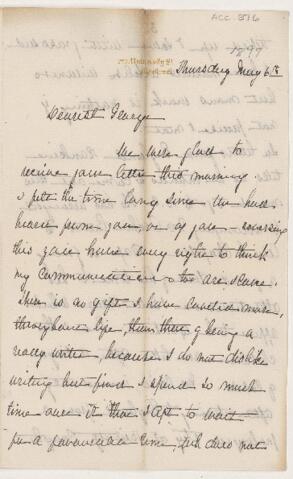 ACC. 8716
1897
Thursday May 6th
Dearest George
We were glad to
receive your letter this morning
I felt the time long since we had
heard from you, or of you - crossing
this you have every right to think
my communications too are scarce.
There is no gift I have coveted more,
throughout life, than that of being a
ready writer, because I do not dislike
writing but find I spend so much
time over it that I apt to wait
for a favourable time, which does not